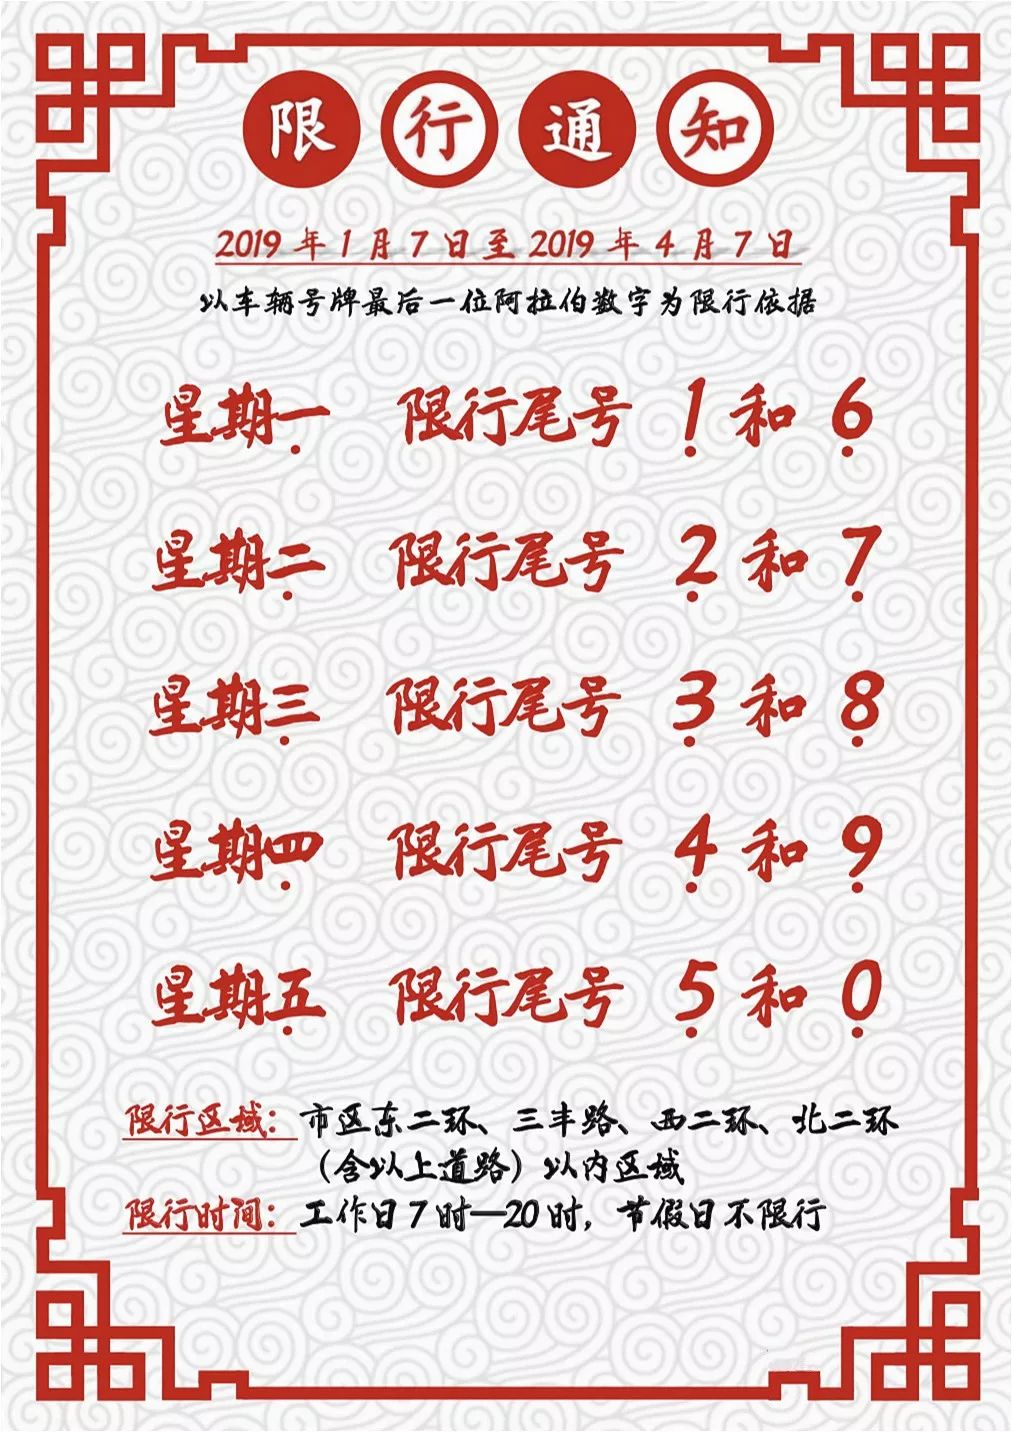 限行通知
2019年1月7日至2019年4月7日
以车辆号牌最后一位阿拉伯数字为限行依据
星期一 限行尾号 1 和 6
星期二 限行尾号 2 和 7
星期三 限行尾号 3 和 8
星期四 限行尾号 4 和 9
星期五 限行尾号 5 和 0
限行区域：市区东二环、三丰路、西二环、北二环
（含以上道路）以内区域
限行时间：工作日7时—20时，节假日不限行